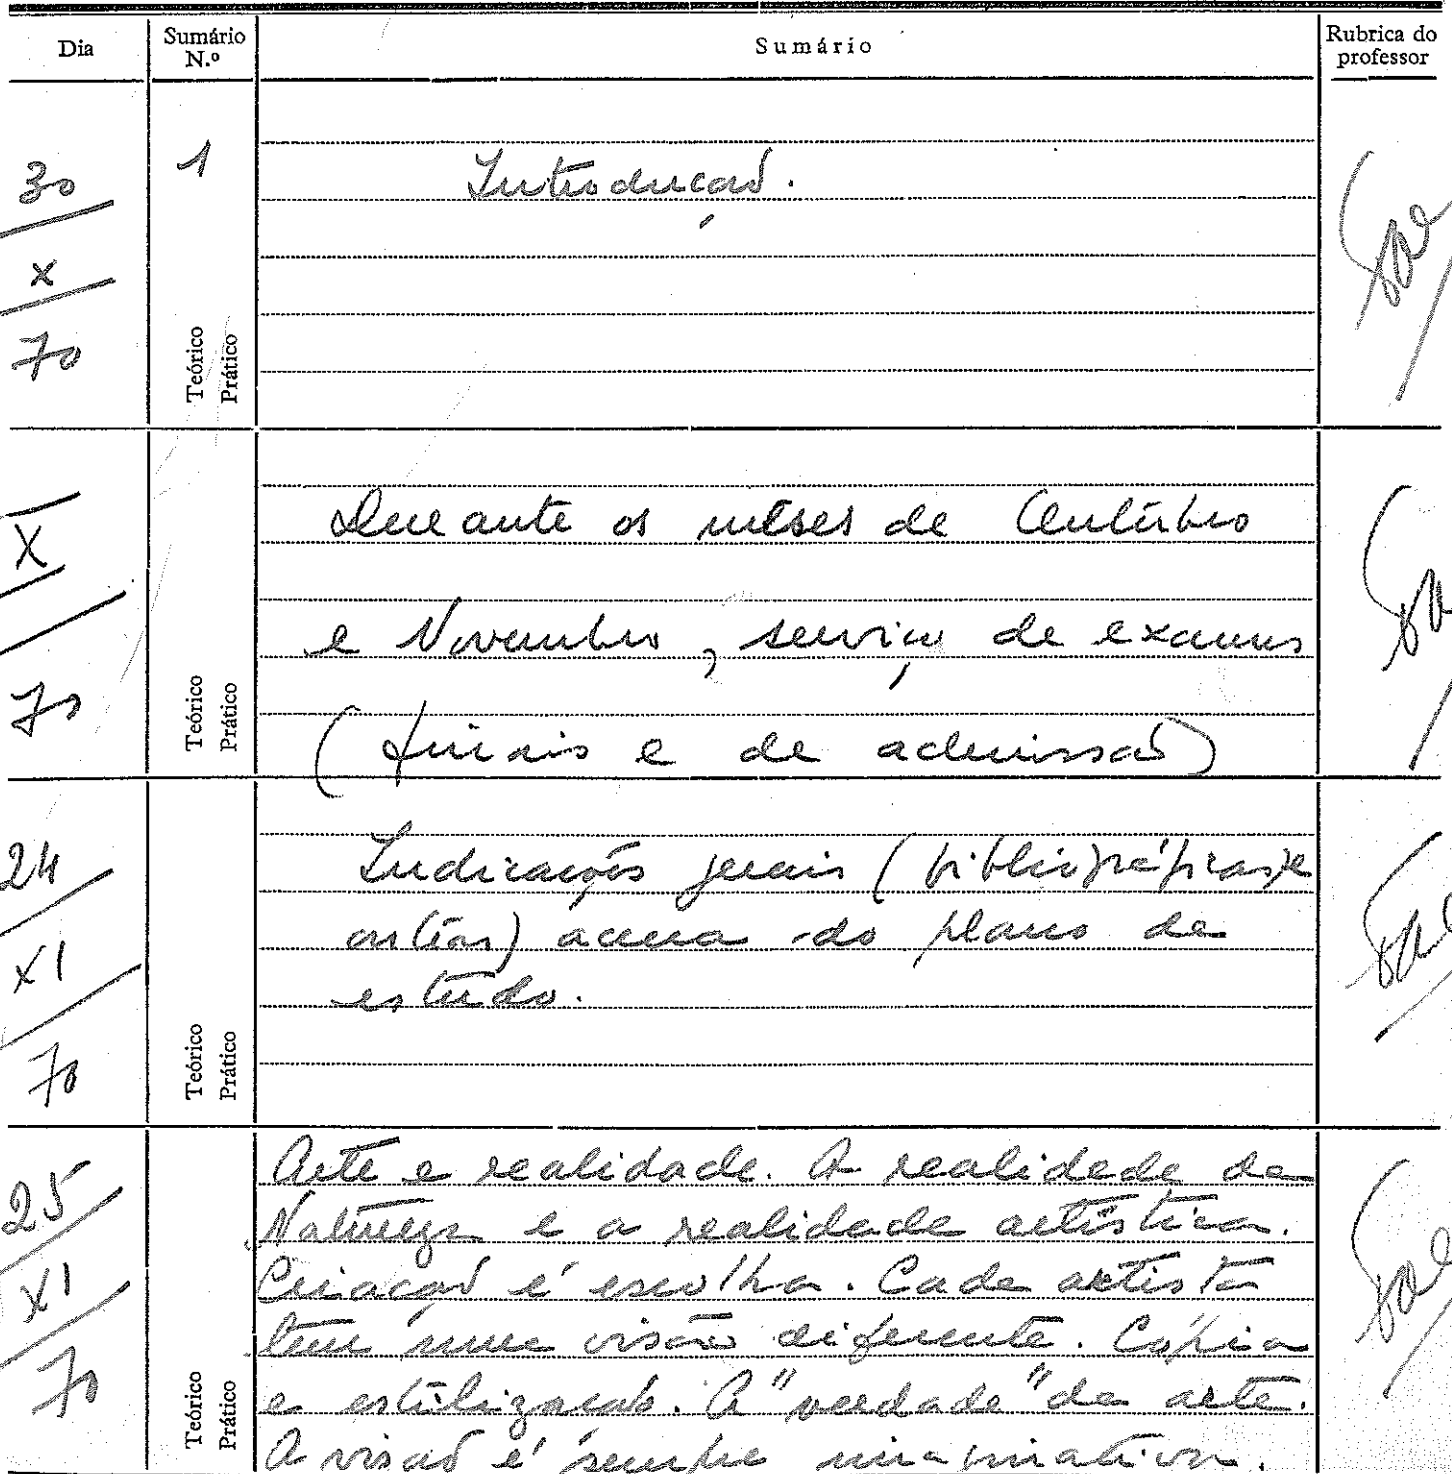 Dia
Sumário N.º
Sumário
Rubrica do professor
30
X
70
1
Introdução.
Teórico
Prático
X
70
Durante os mêses de Outúbro
e Novembro, serviço de exames
(finais e de admissão)
Teórico
Prático
24
XI
70
Indicações gerais (bibliográficas e
outras) acerca do plano de
estudo.
Teórico
Prático
25
XI
70
Arte e realidade. A realidade da
Natureza e a realidade artística.
Criação é escolha. Cada artista
tem uma visão diferente. Cópia
e estilização. A "verdade" da arte.
A visão é sempre imaginativa.
Teórico
Prático